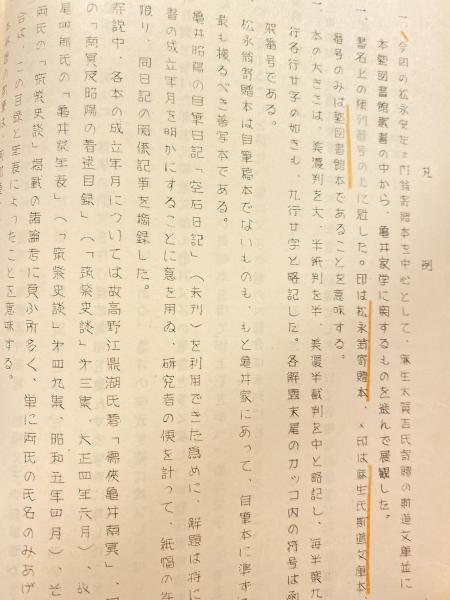 凡例
一、今回の松永安左ヱ門翁寄贈本を中心として、麻生太賀吉氏寄贈の斯道文庫並に
本塾図書館蔵書の中から、亀井家学に関するものを選んで展観した。
一、書名上の陳列番号の上に冠した。印は松永翁寄贈本、、印は麻生氏斯道文庫本、
番号のみは塾図書館本であることを意味する。
一、本の大きさは、美濃判を大、半紙判を半、美濃半截判を中と略記し、毎半葉九
行各行廿字の如きも、九行廿字と略記した。各解題末尾のカッコ内の符号は函
架番号である。
松永翁寄贈本は自筆稿本でないものも、もと亀井家にあって、自筆本に準ず
最も拠るべき善写本である。
亀井昭陽の自筆日記「空石日記」(未刊)を利用できた為めに、解題は特に
書の成立年月を明かにすることに意を用ゐ、研究者の便を計って、紙幅の許
限り、同日記の関係記事を摘録した。
解説中、各本の成立年月については故高野江鼎湖氏著「儒侠亀井南冥」、
の「南冥及昭陽の著述目録」(「筑紫史談」第三集、大正四年六月)、故
屋四郎氏の「亀井家年表」(「筑紫史談」第四九集、昭和五年四月)、そ
両氏の「筑紫史談」掲載の諸論考に負ふ所多く、単に両氏の氏名のみあげ
合は、この目録と年表によったことを意味する。